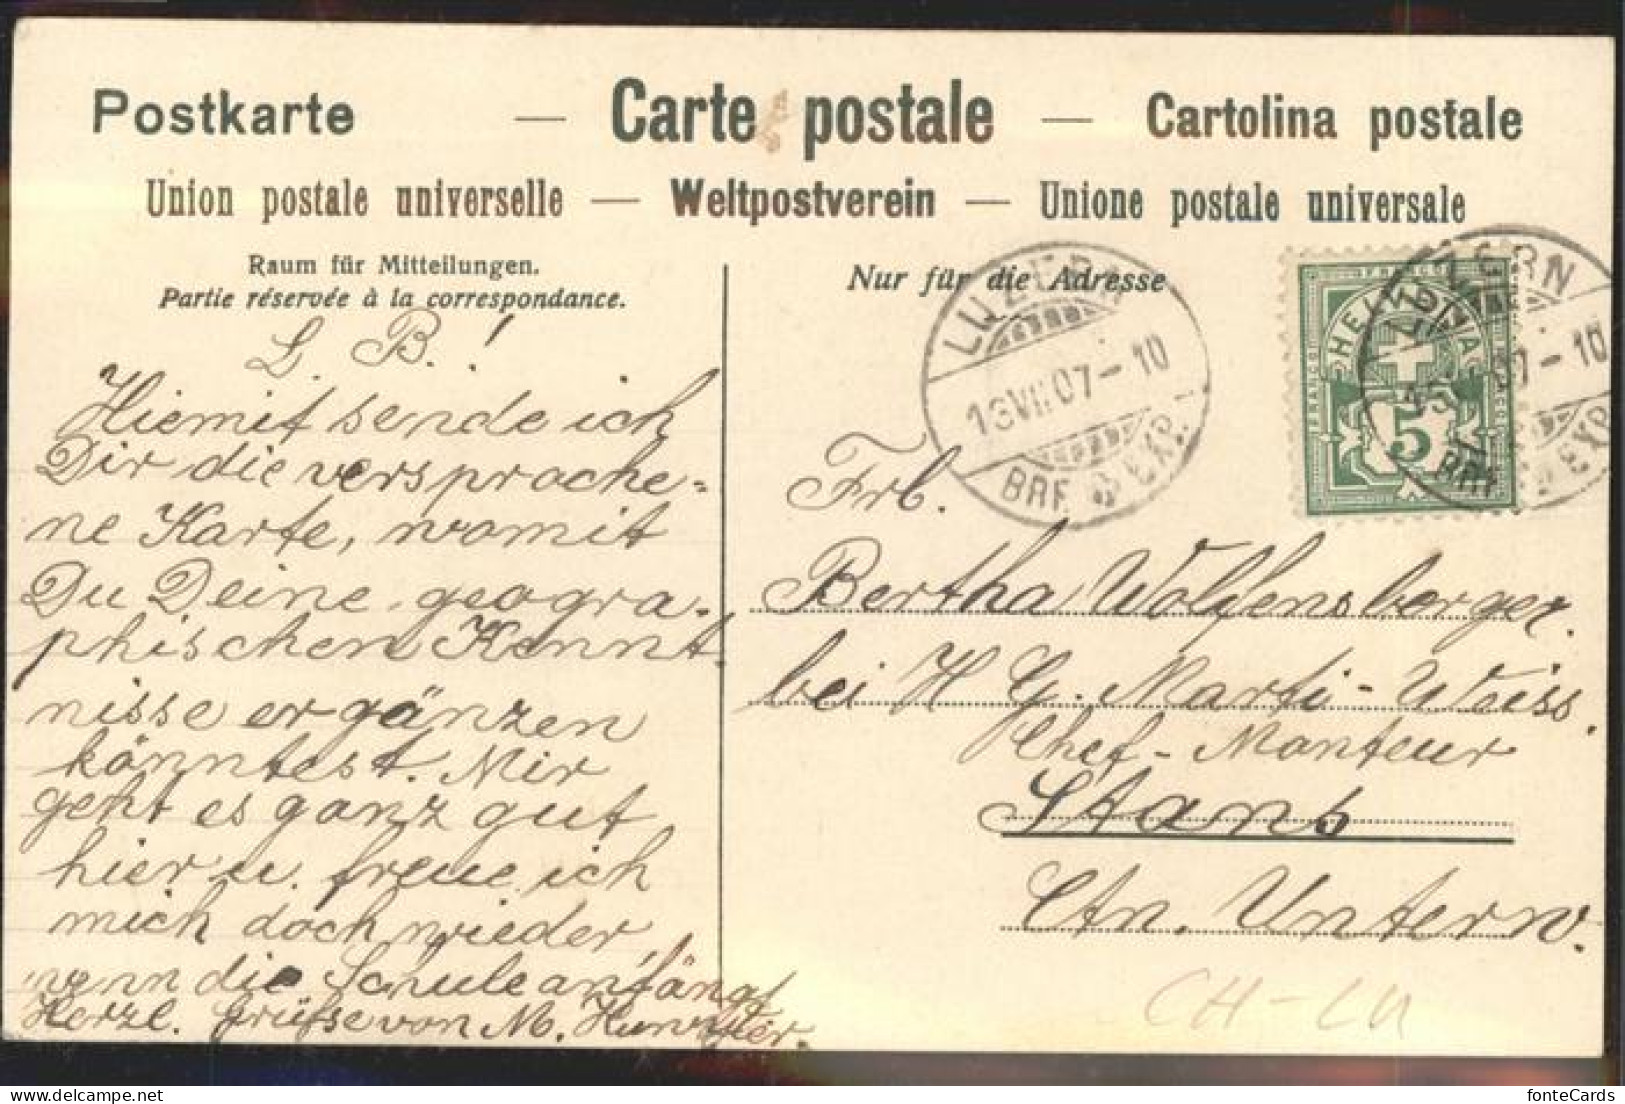 Postkarte — Carte postale — Cartolina postale
Union postale universelle — Weltpostverein — Unione postale universale
Raum für Mitteilungen.
Partie réservée à la correspondance.
Nur für die Adresse
L. B.!
Hiermit sende ich
Dir die versproche=
ne Karte, womit
Du Deine geogra-
phischen Kennt-
nisse ergänzen
könntest. Mir
geht es ganz gut
hier u. freue ich
mich doch wieder,
wenn die Schule anfängt
Herzl. Grüsse von M.
LUZERN
13.VII.07-10
BRF. EXP.
HELVETIA
FRANCO
5
LUZERN
07-10
BRF. EXP.
Frl.
Bertha Wolfensberger.
bei H G. Marti-Weiss.
Chef-Monteur
Stans
Ctn. Unterw.
CH-LU
fonteCards